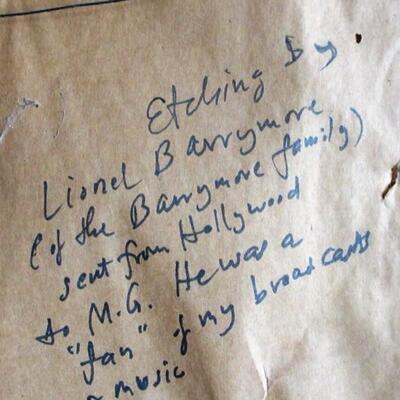 Etching By
Lionel Barrymore
(of the Barrymore family)
sent from Hollywood
to M.G. He was a
"fan" of my broadcasts
music